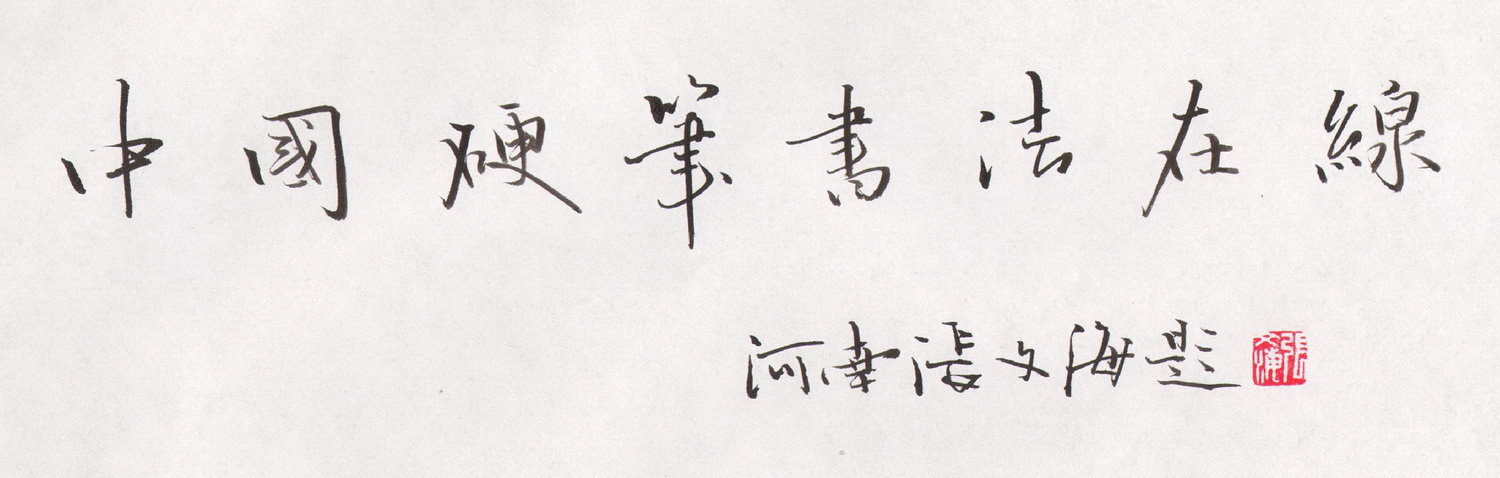 中國硬筆書法在線
河南張文海題
張文海